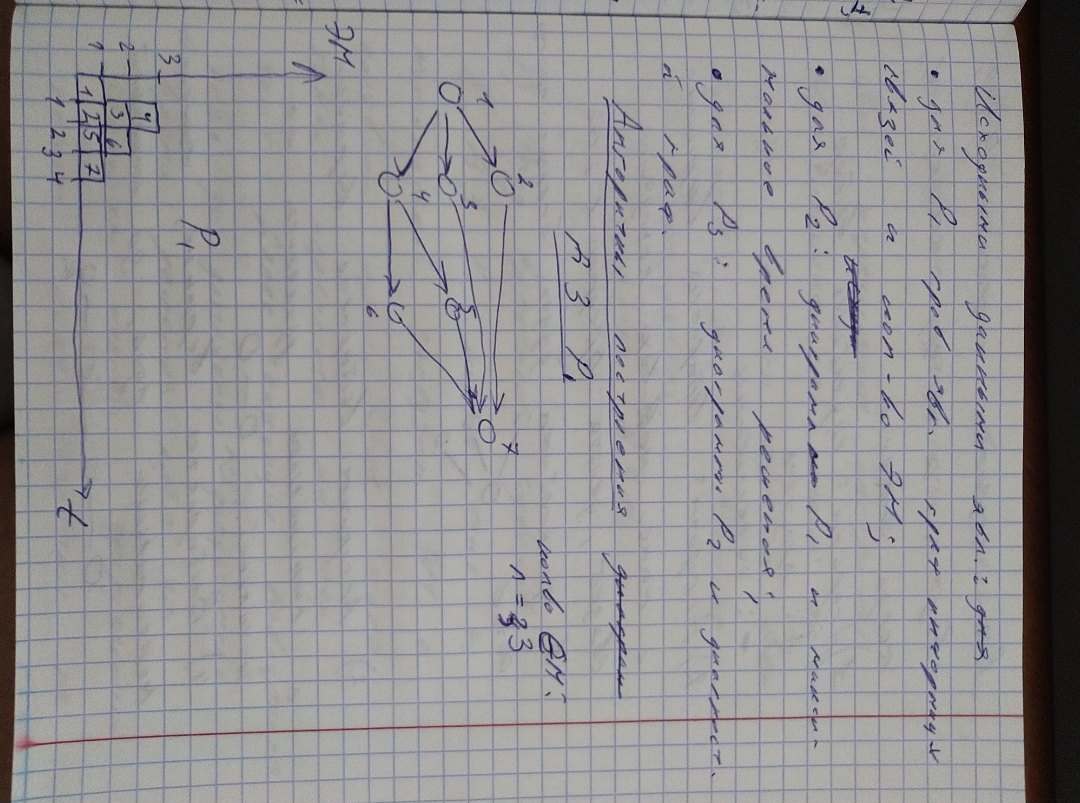 Исходными данными явл.: для
• для P1 гров явл. граф информац
связей и кол-во ЭМ;
• для P2: диаграмма P1 и макси-
мальное время решения;
• для P3: диаграмма P2 и диагност.
й граф.
Алгоритмы построения диаграм
АЗ P1
колво ЭМ:
n = 3
1
2
3
4
5
6
7
ЭМ
3
2
1
4
3 6
1 2 5 7
1 2 3 4
t
P1